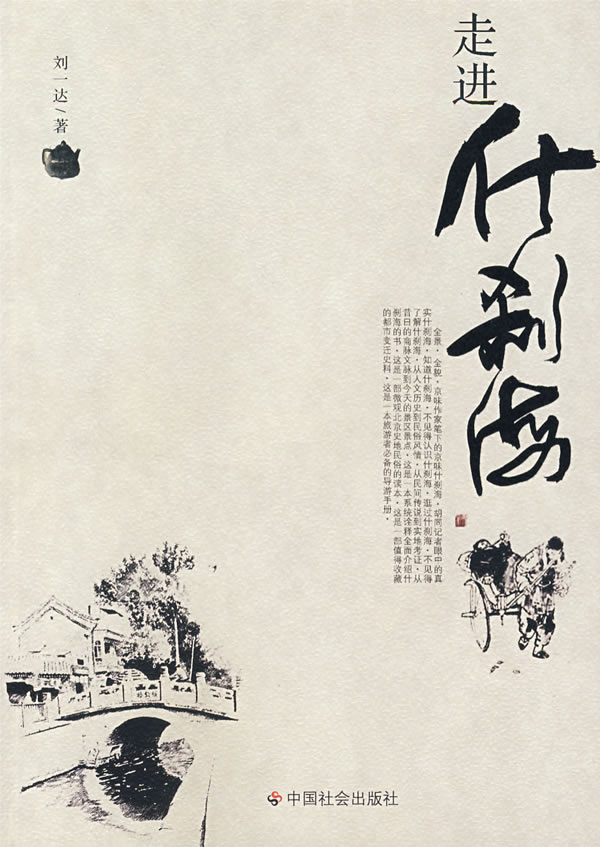 走进
什刹海
刘一达/著
全景，全貌，京味作家笔下的京味什刹海，胡同记者眼中的真
实什刹海，知道什刹海，不见得认识什刹海，逛过什刹海，不见得
了解什刹海，从人文历史到民俗风情，从民间传说到实地考证，从
昔日的商脉文脉到今天的景区景点，这是一本系统诠释全面介绍什
刹海的书，这是一部微观北京史地民俗的读本，这是一部值得收藏
的都市变迁史料，这是一本旅游者必备的导游手册。
中国社会出版社